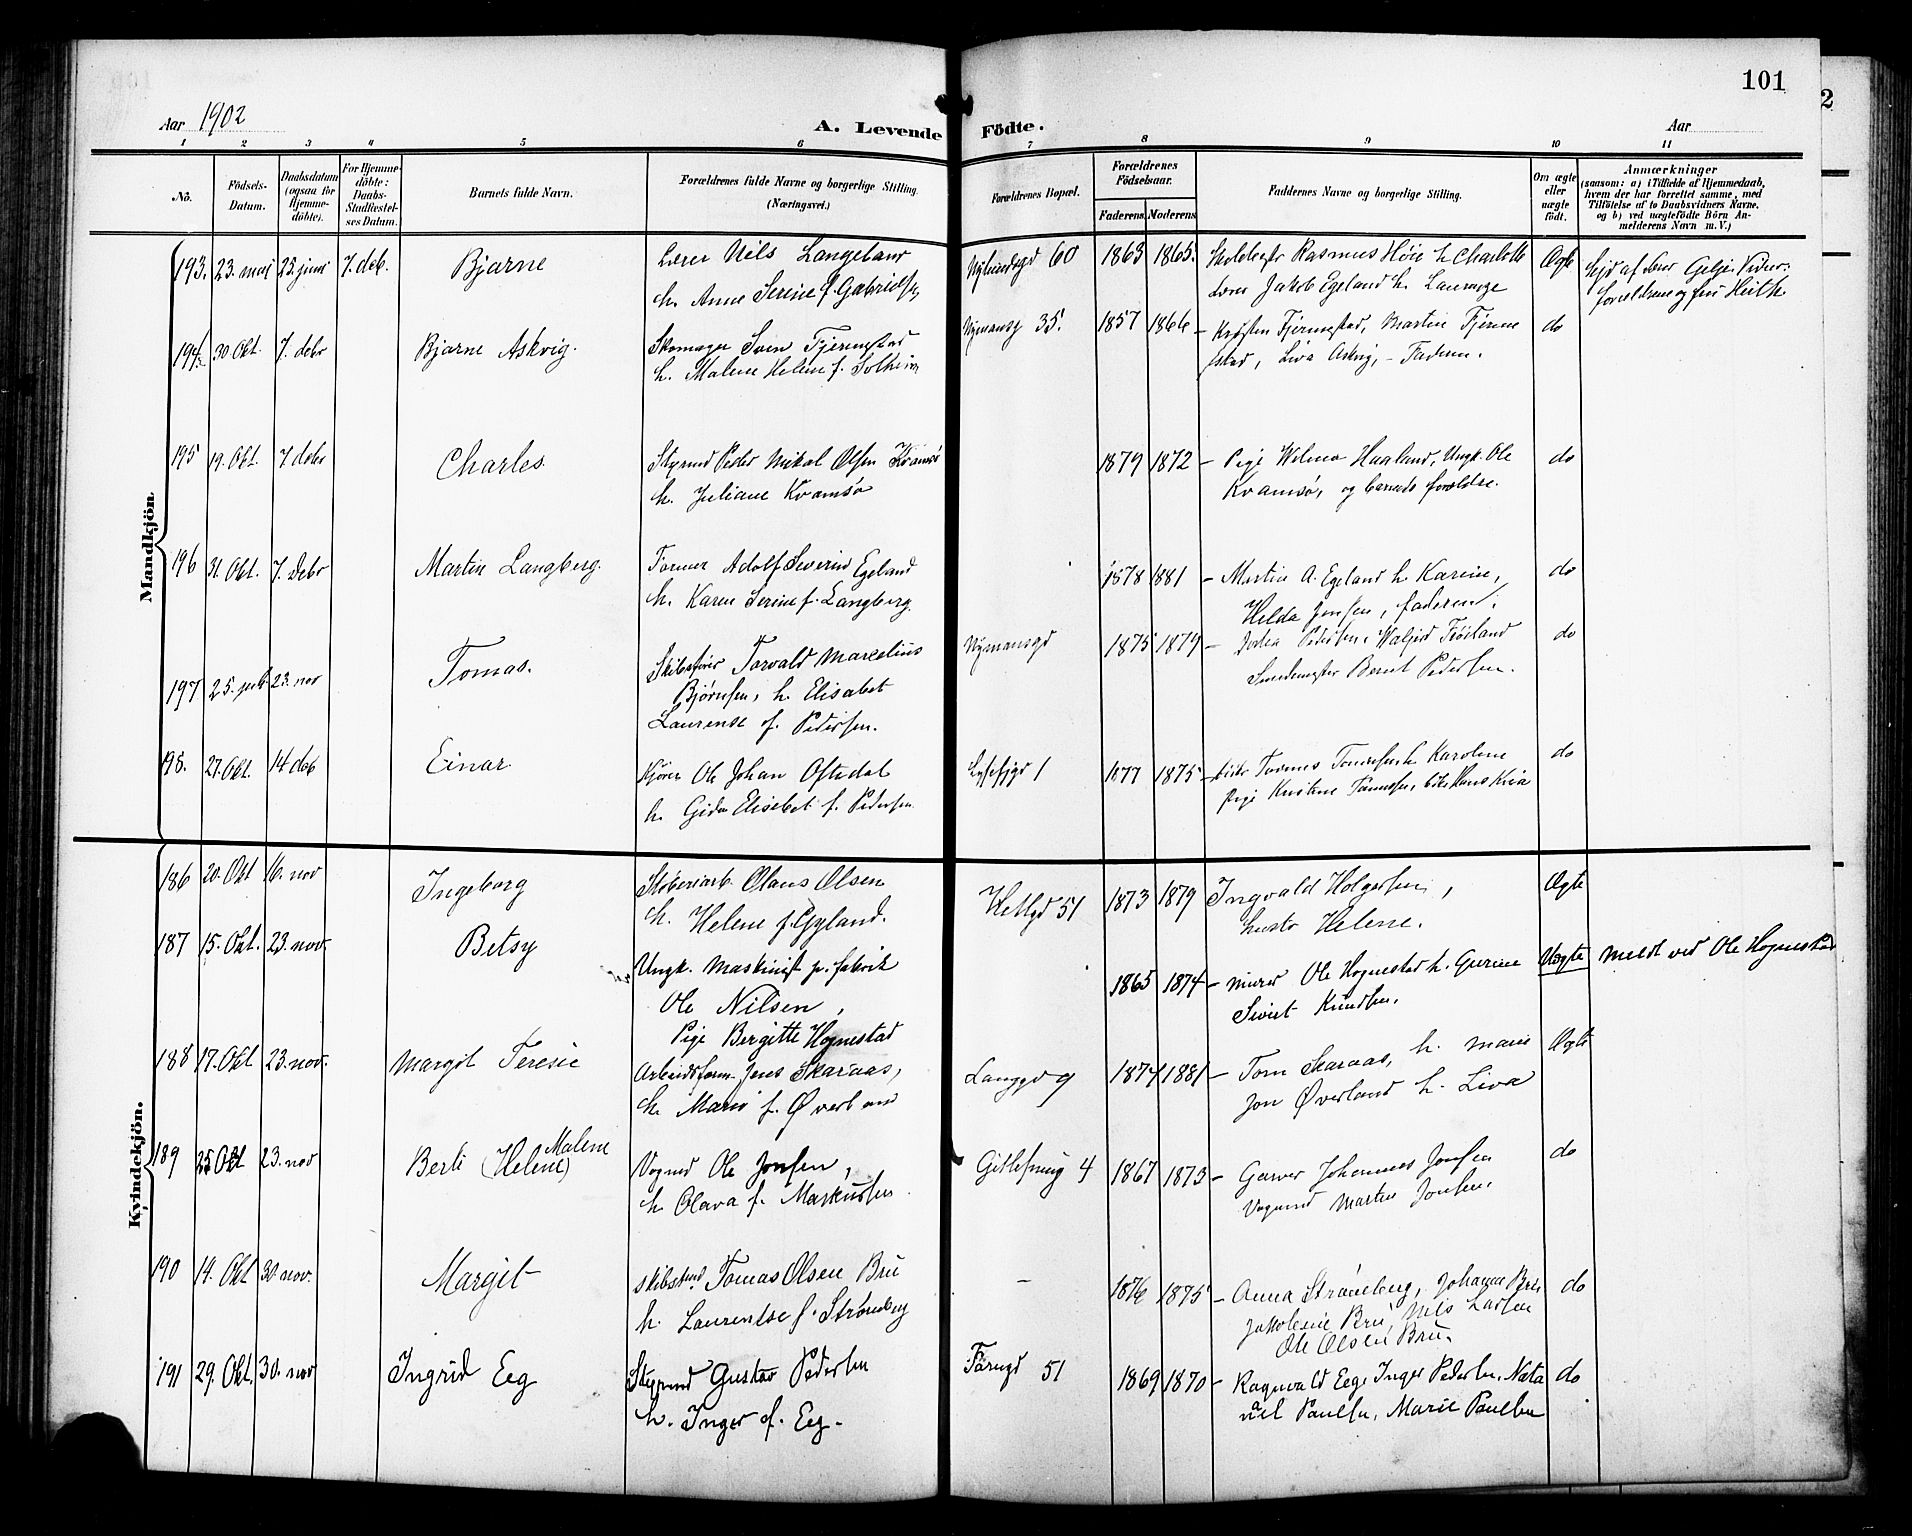 101
Aar 1902
A. Levende Födte.
Aar
1 2 3 4 5 6 7 8 9 10 11
No.
Födsels-Datum.
Daabsdatum (ogsaa for Hjemme-döbte).
For Hjemme-döbte: Daabs-Stadfæstel-ses Datum.
Barnets fulde Navn.
Forældrenes fulde Navne og borgerlige Stilling. (Næringsvei.)
Forældrenes Bopæl.
Forældrenes Födselsaar.
Faderens. Moderens.
Faddernes Navne og borgerlige Stilling.
Om ægte eller uægte födt.
Anmærkninger
(saasom: a) i Tilfælde af Hjemmedaab, hvem der har forrettet samme, med Tilföielse af to Daabsvidners Navne, og b) ved uægtefödte Börn An-melderens Navn m. V.)
Mandkjön.
193. 23. mai 25. juni 7. deb. Bjarne Lærer Nils Langeland 60 1863 1865. Rasmus Höie h. Charlotte Ægte
h. Anne Serine f. Gabrielsen Lærer Jakob Egeland h.
194. 30 Okt. 7. debr Bjarne Askvig. Skomager Sven Fjermestad Nymansg 35. 1857 1866 – Fjermestad, Martin Fjerme do
h. Malene Helene f. Solheim stad, Liva Askvig, – Faderen.
195 19. Okt. 7 debr Charles. Styrmd Peder Mikal Olsen Kvamsö 1879 1872 – Pige Wilma Haaland, Ungk. Ole do
h. Juliane Kvamsö Kvamsö, og barnets forældre.
196 31. Okt. 7. debr Martin Langberg. Former Adolf Severin Egeland 1878 1881 – Martin A. Egeland h. Karine, do
h. Karen Serine f. Langberg. Helda Jensen, faderen.
197 25. 23. nov Tomas. Skibsfører Torvald Marcelius Nymansgd 1875 1879 – Pedersen, do
Bjørnsen, h. Elisabet Smedemester Bernt Pedersen.
Laurense f. Pedersen.
198. 27. Okt. 14 deb Einar Kjører Ole Johan Oftedal Lysefjgd 1 1877 1875 – Karoline do
h. Elisebet f. Pedersen Pige Kristine
Kvindekjön.
186 20. Okt 16. nov Ingeborg Støberiarb. Olaus Olsen 51 1873 1879 Ingvald Holgersen, Ægte
h. Helene f. Gyland. hustr Helene.
187 15. Okt. 23. nov. Betsy Ungk. Maskinist p. fabrik 1865 1874 – murer Ole Hognestad h. Gurine Uægte Meldt ved Ole Hognestad
Ole Nilsen, Sivert Knudsen.
Pige Bergitte Hognestad
188 17. Okt 23. nov. Margit Teresie Arbeidsform. Jens Skaraas, Langgd 9 1874 1881 – Tom Skaraas, h. Marie Ægte
h. Marie f. Øverland Jon Øverland h. Liva
189 25 Okt 23. nov Berti (Helene) Malene Vognmd Ole Jonsen, 4 1867 1873 – Garver Johannes Jonsen do
h. Olava f. Markussen Vognmd Martin Jonsen.
190 14. Okt 30. nov. Margit Skibstmd. Tomas Olsen Bru – 1876 1875 – Anna Strømberg, Johanne Bru do
h. Laurentse f. Strømberg Jakobine Bru, Nils Larsen
Ole Olsen Bru.
191 29. Okt. 30. nov Ingrid Eeg Styrmd Gustav Pedersen 51 1869 1870 – Ragnvald Eeg Inger Pedersen, Nata do
h. Inger f. Eeg. nael Paulsen, Marie Paulsen